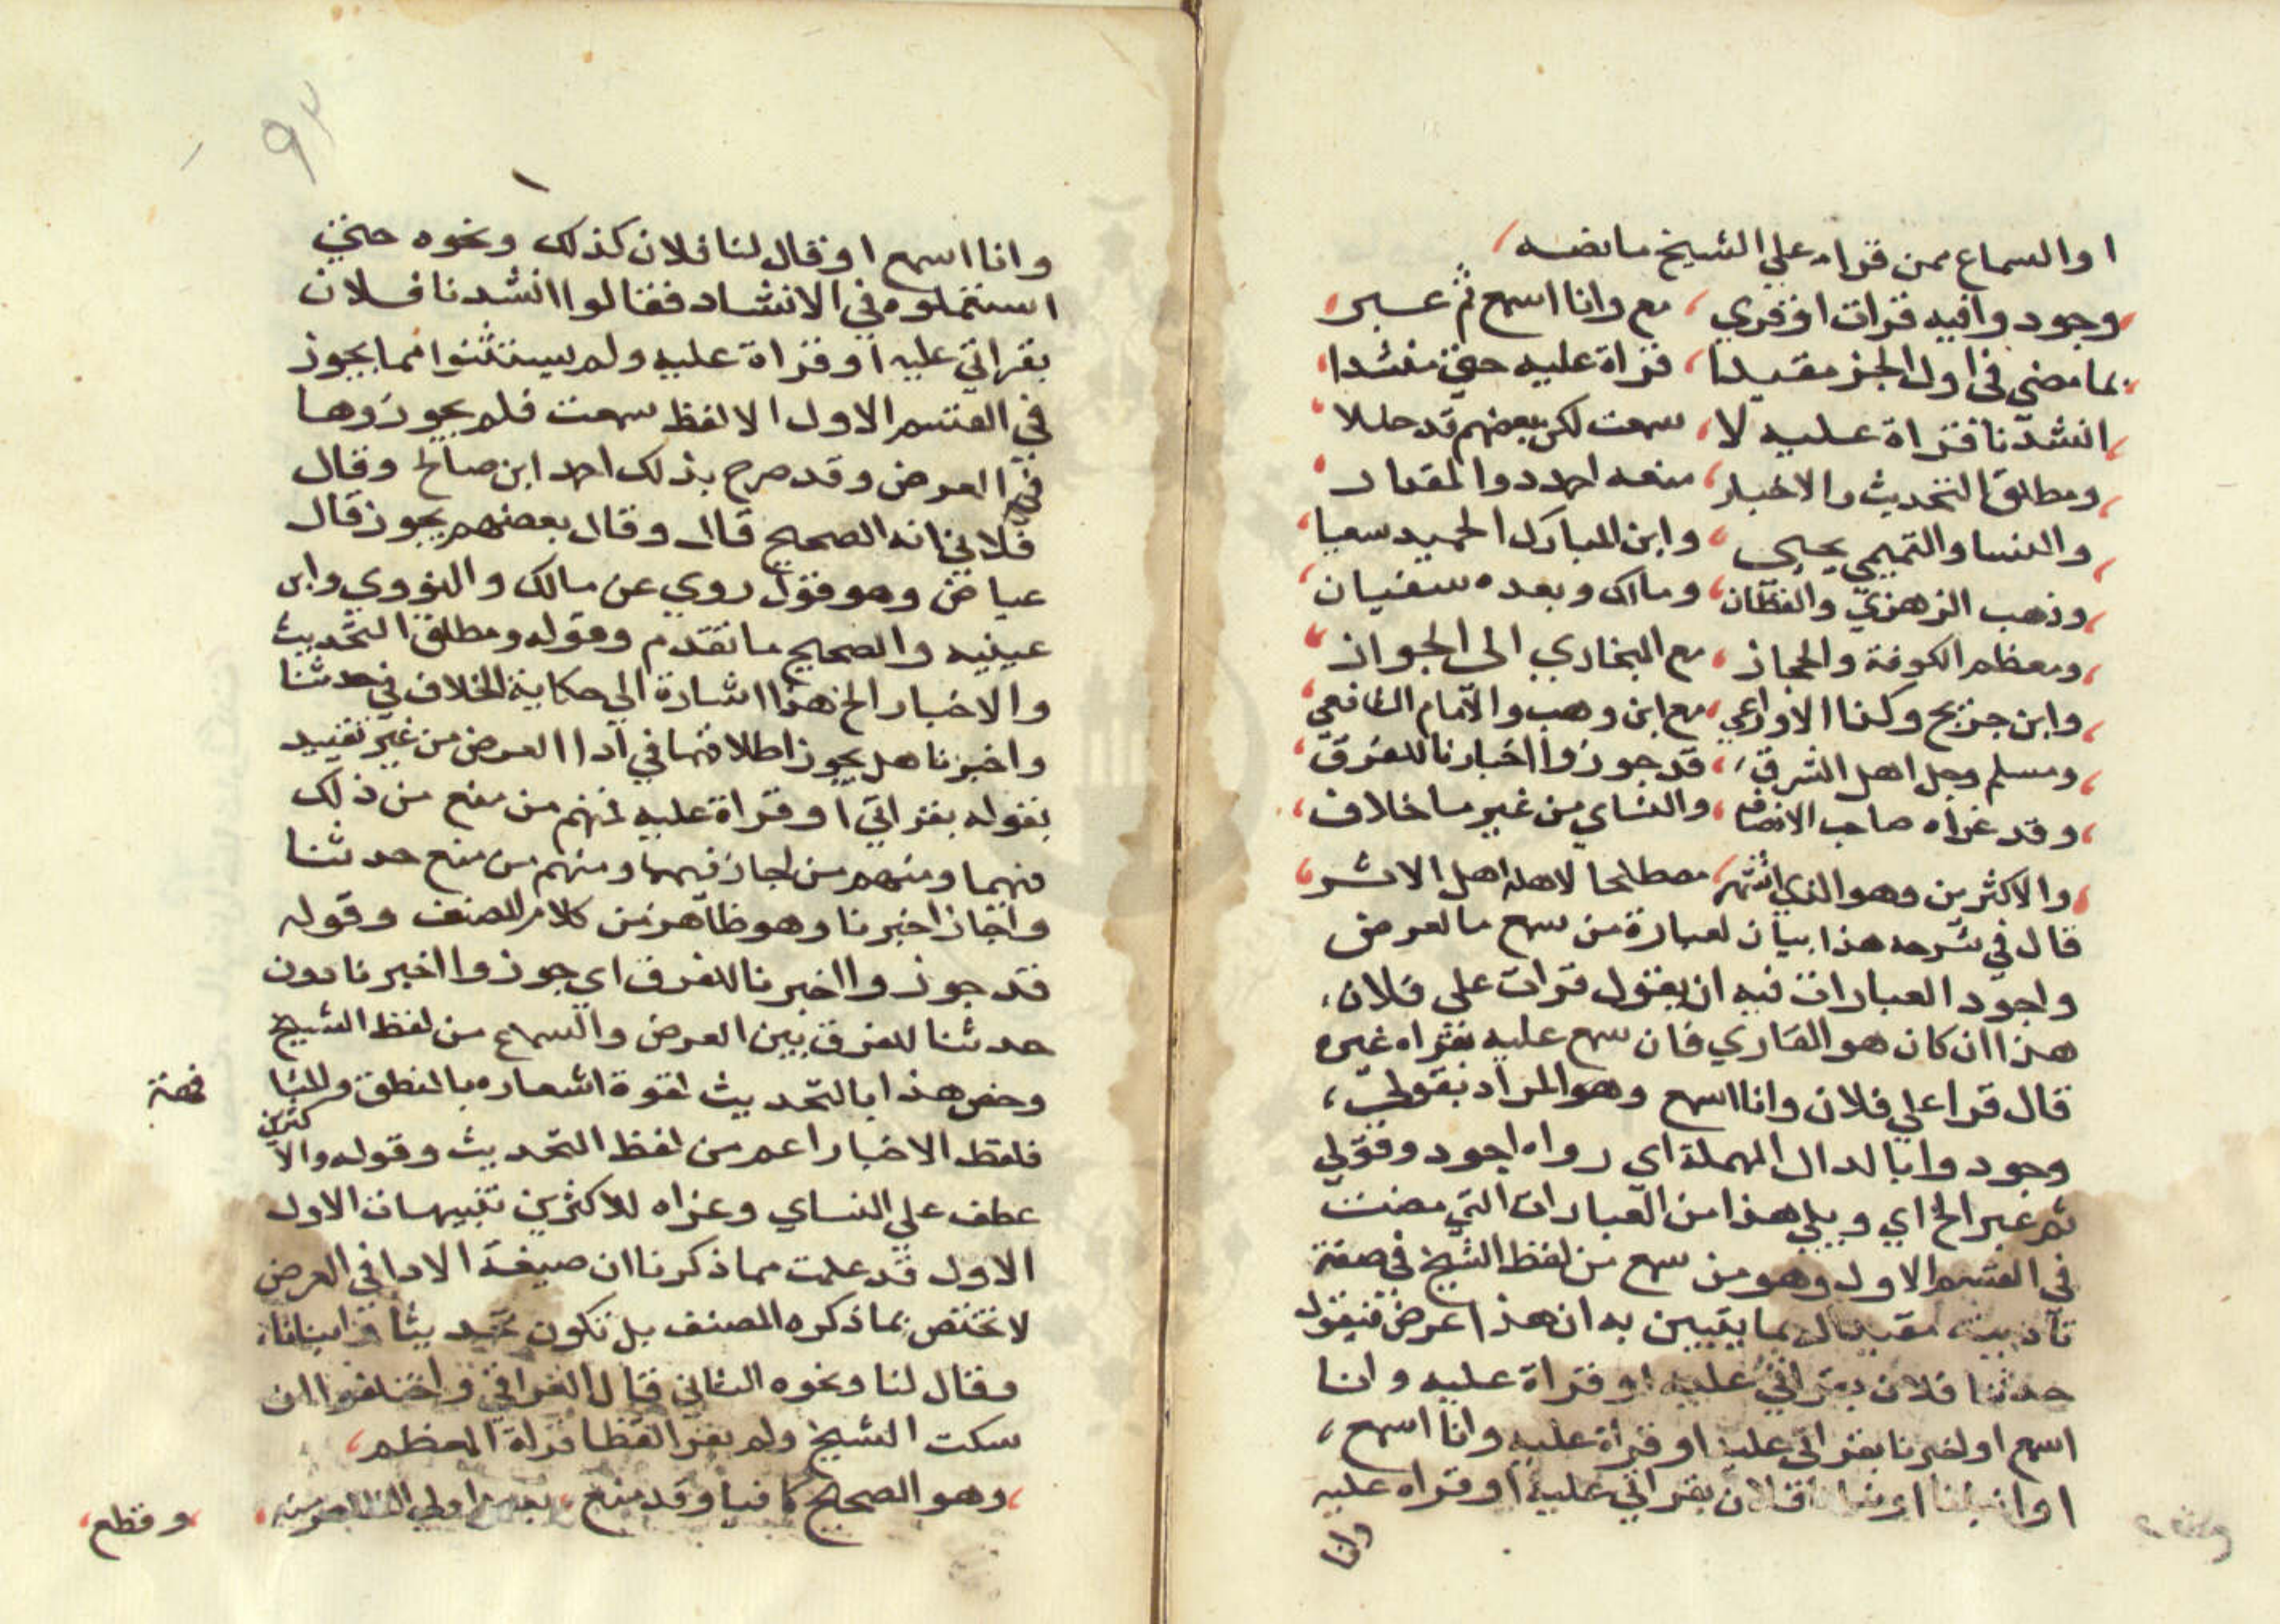 او السماع ممن قراه علي الشيخ ما نصه
وجودوا فيه قرات او قري مع وانا اسمع ثم عبر
بما مضي في اول الجز مقيدا قراة عليه حتي منشدا
انشدنا قراة عليه لا سمعت لكن بعضهم قد حللا
ومطلق التحديث والاخبار منعه احمد ذو المقدار
والنسا والتميمي يحيى وابن المبارك الحميد سعيا
وذهب الزهري والقطان ومالك وبعده سفيان
ومعظم الكوفة والحجاز مع البخاري الى الجواز
وابن جريج وكذا الاوزاعي مع ابن وهب والامام الشافعي
ومسلم وجل اهل الشرق قد جوزوا اخبارنا للفرق
وقد عزاه صاحب الانصاف والنساي من غير ما خلاف
والاكثرين وهو الذي اشتهر مصطلحا لاهله اهل الاثر
قال في شرحه هذا بيان لعبارة من سمع بالعرض
واجود العبارات فيه ان يقول قرات على فلان
هذا ان كان هو القاري فان سمع عليه بقراه غيره
قال قرا علي فلان وانا اسمع وهو المراد بقولي
وجودوا بالدال المهملة اي رواه اجود وقولي
ثم عبر الخ اي ويلي هذا من العبارات التي مضت
في القسم الاول وهو من سمع من لفظ الشيخ في صفة
تاديته مقيدا له بما يتبين به ان هذا عرض فيقول
حدثنا فلان بقراتي عليه او قراة عليه وانا
اسمع او اخبرنا بقراتي عليه او قراة عليه وانا اسمع
او انبانا او نبانا فلان بقراتي عليه او قراه عليه
وانا
وانا اسمع او قال لنا فلان كذلك ونحوه حتي
استعملوه في الانشاد فقالوا انشدنا فلان
بقراتي عليه او قراة عليه ولم يستثنوا مما يجوز
في القسم الاول الا لفظ سمعت فلم يجوزوها
في العرض وقد صرح بذلك احمد ابن صالح وقال
قال وقال بعضهم يجوز قال
عياض وهو قول روي عن مالك والثوري وابن
عيينه والصحيح ما تقدم وقوله ومطلق التحديث
والاخبار الخ هذا اشارة الي حكاية الخلاف في حدثنا
واخبرنا هل يجوز اطلاقهما في ادا العرض من غير تقييد
بقوله بقراتي او قراة عليه فمنهم من منع من ذلك
فيهما ومنهم من اجاز فيهما ومنهم من منع حدثنا
واجاز اخبرنا وهو ظاهر من كلام المصنف وقوله
قد جوزوا اخبرنا للفرق اي جوزوا اخبرنا دون
حدثنا للفرق بين العرض والسماع من لفظ الشيخ
وخص هذا بالتحديث لقوة اشعاره بالنطق والمشا
فهة
فلفظ الاخبار اعم من لفظ التحديث وقوله والا
كثرين
عطف علي النساي وعزاه للاكثرين تنبيهات الاول
الاول قد علمت مما ذكرنا ان صيغة الادا في العرض
لا تختص بما ذكره المصنف بل تكون تحديثا وانبانا
وقال لنا ونحوه الثاني قال العراقي واختلفوا ان
سكت الشيخ ولم يقر لفظا فراه المعظم
وهو الصحيح كافيا وقد منع بعض اولي الظاهر منه
وقطع